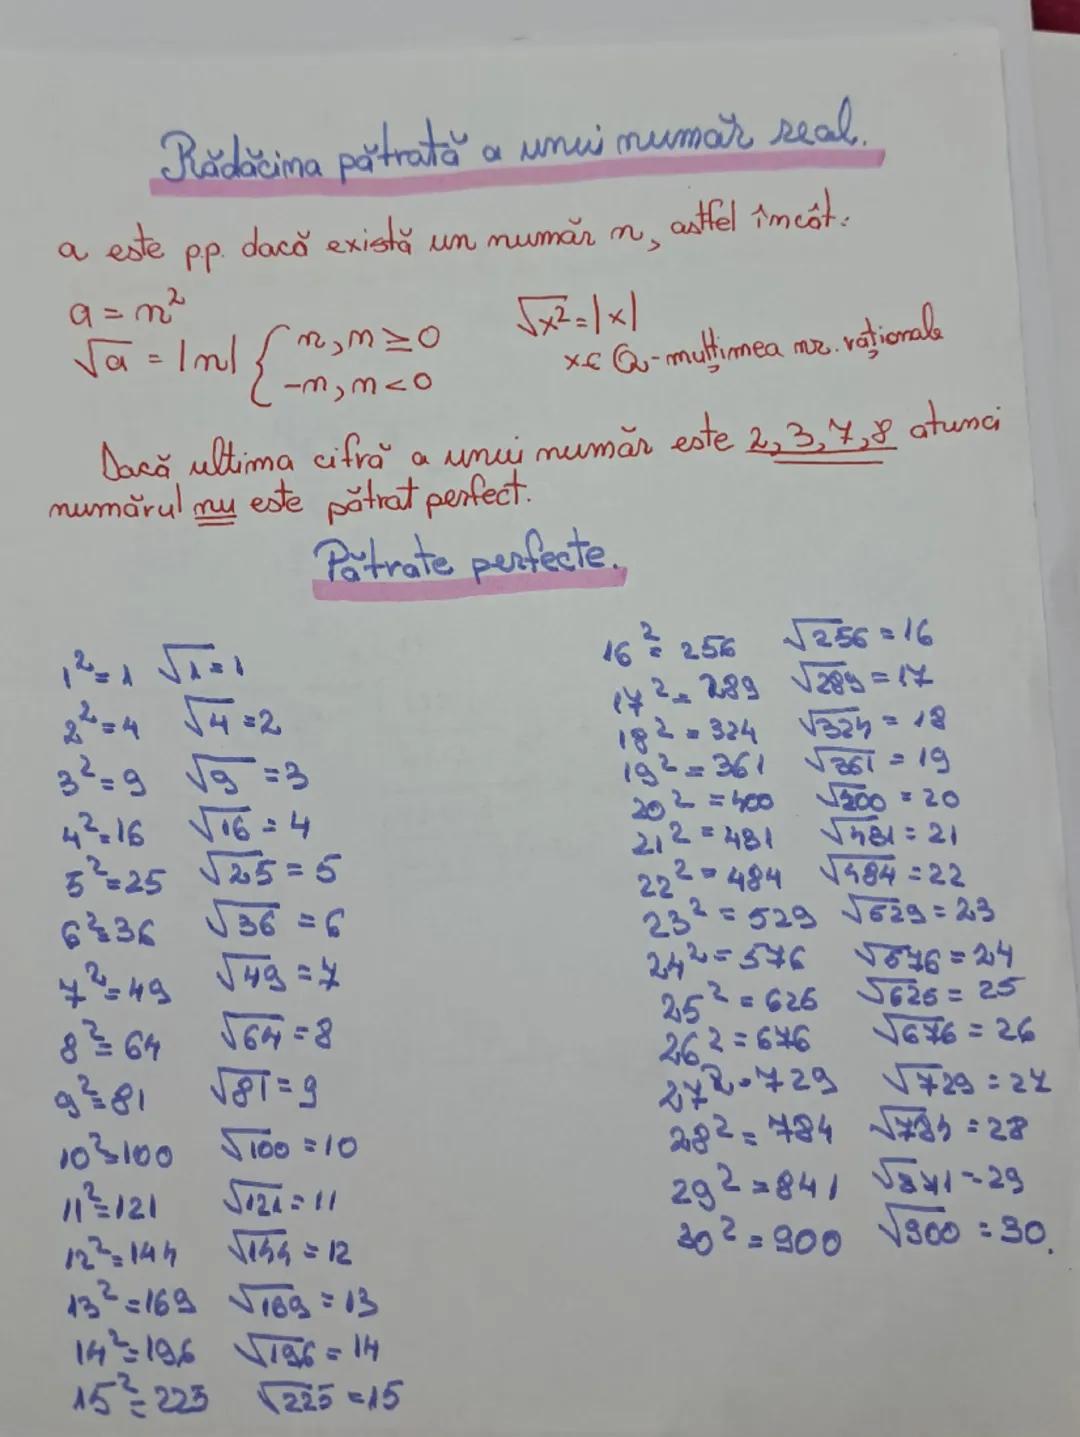 Rădăcina pătrată a unui număr real.
a este p.p. dacă există un număr n, astfel încât:
a = n²
√a = |n| { n, n ≥ 0
-n, n < 0
√x² = |x|
x ∈ Q - mulțimea nr. raționale
Dacă ultima cifră a unui număr este 2, 3, 7, 8 atunci
numărul nu este pătrat perfect.
Pătrate perfecte.
1² = 1 √1 = 1
2² = 4 √4 = 2
3² = 9 √9 = 3
4² = 16 √16 = 4
5² = 25 √25 = 5
6² = 36 √36 = 6
7² = 49 √49 = 7
8² = 64 √64 = 8
9² = 81 √81 = 9
10² = 100 √100 = 10
11² = 121 √121 = 11
12² = 144 √144 = 12
13² = 169 √169 = 13
14² = 196 √196 = 14
15² = 225 √225 = 15
16² = 256 √256 = 16
17² = 289 √289 = 17
18² = 324 √324 = 18
19² = 361 √361 = 19
20² = 400 √400 = 20
21² = 481 √481 = 21
22² = 484 √484 = 22
23² = 529 √529 = 23
24² = 576 √576 = 24
25² = 625 √625 = 25
26² = 676 √676 = 26
27² = 729 √729 = 27
28² = 784 √784 = 28
29² = 841 √841 = 29
30² = 900 √900 = 30.